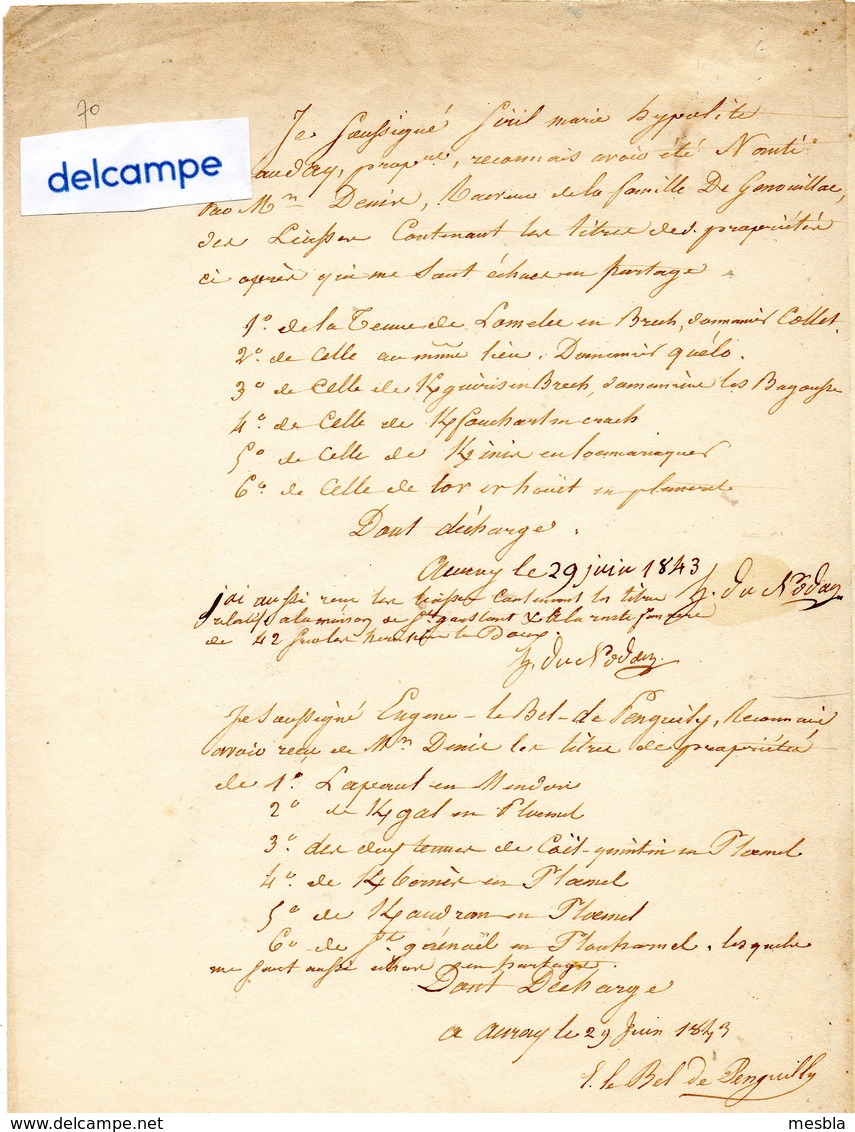 70
delcampe
Je Soussigné Cyril marie hypolite
propre, reconnais avoir été Nanti
par Mr Denis, de la famille De Genouillac,
des Liasses Contenant les titres des propriétés
ci après qui me Sont échues en partage
1º de la Tenue de Lomelec en Brech, domanier Collet.
2º de Celle au même lieu. Domanier quélo.
3º de Celle de Kguéris en Brech, domanière les Bagousse
4º de Celle de Kfouchart en crach
5º de Celle de Kinis en locmariaquer
6º de Celle de tor er houët en plumeret
Dont décharge.
Auray le 29 juin 1843
H. du Nôday
j'ai aussi reçu les liasses Contenant les titres
relatifs à la maison de St goustant & à la rente foncière
de 42
H. du Nôday.
Je Soussigné Eugene - le Bel - de Penguily, Reconnais
avoir reçu de Mr Denis les titres de propriétés
de 1º. en Mendon
2º de Kgal en Ploemel
3º. des deux tenues de Coët-quintin en Ploemel
4º. de en Ploemel
5º de Kaudran en Ploemel
6º de St guénaël en Plouharnel. lesquels
me sont aussi échus en partage.
Dont Décharge
a auray le 29 Juin 1843
E. le Bel de Penguilly
mesbla